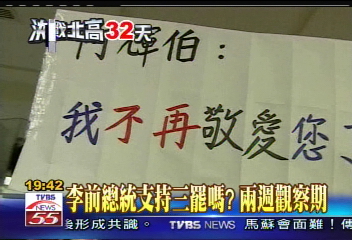 決戰北高32天
輝伯：
我不再敬愛您
19:42
TVBS
NEWS
55
李前總統支持三罷嗎？兩週觀察期
後形成共識。 TVBS NEWS 馬蘇會面難！傳